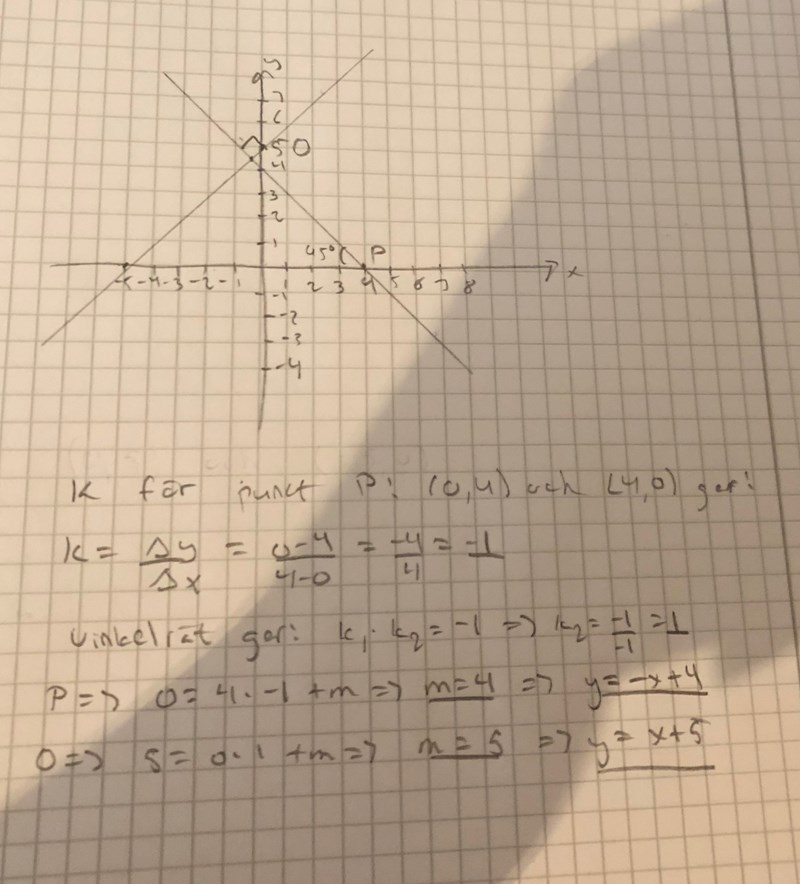 y
7
6
5 O
4
3
2
1
45° P
-5 -4 -3 -2 -1 1 2 3 4 5 6 7 8 x
-1
-2
-3
-4
K för punct P: (0,4) och (4,0) ger:
k = Δy/Δx = 0-4/4-0 = -4/4 = -1
Vinkelrät ger: k₁ · k₂ = -1 => k₂ = -1/-1 = 1
P => 0 = 4 · -1 + m => m = 4 => y = -x+4
O => 5 = 0 · 1 + m => m = 5 => y = x+5